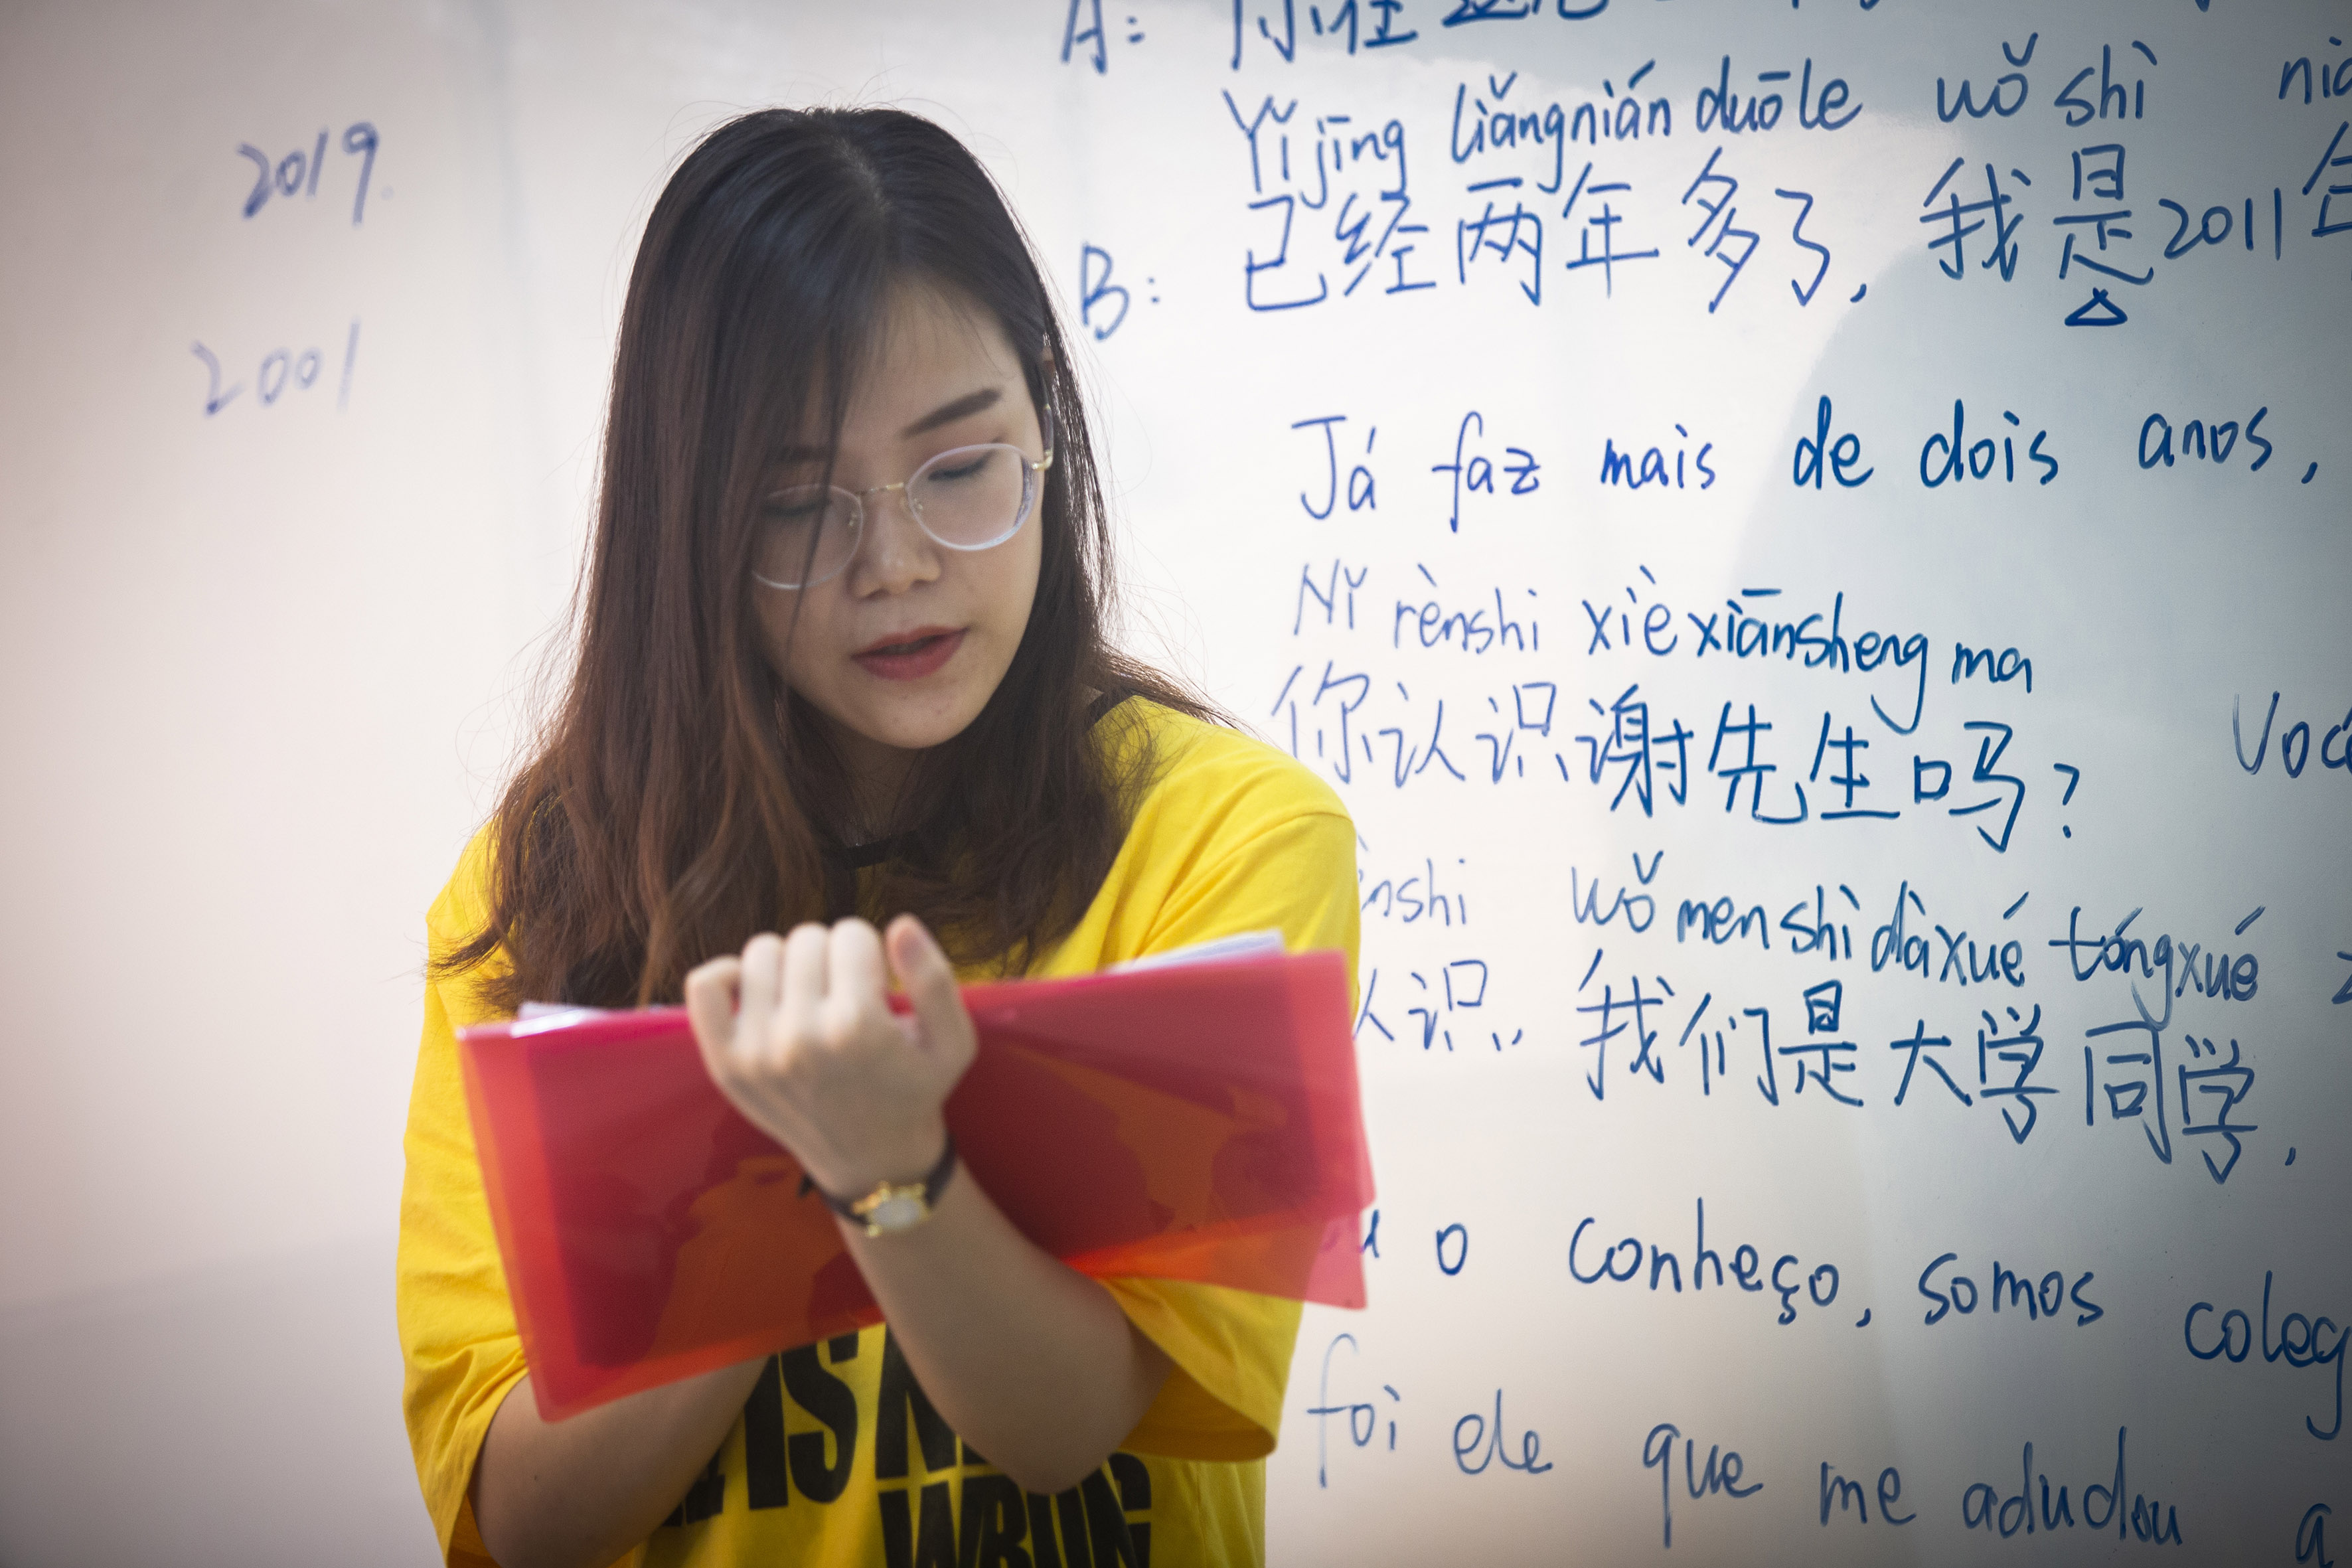 2019.
2001
A:
Yǐjīng liǎngnián duōle wǒ shì
B: 已经两年多了,我是2011
Já faz mais de dois anos,
Nǐ rènshi xièxiānsheng ma
你认识谢先生吗?
wǒmen shì dàxué tóngxué
认识,我们是大学同学,
o conheço, somos coleg
foi ele que me adudou a
IS